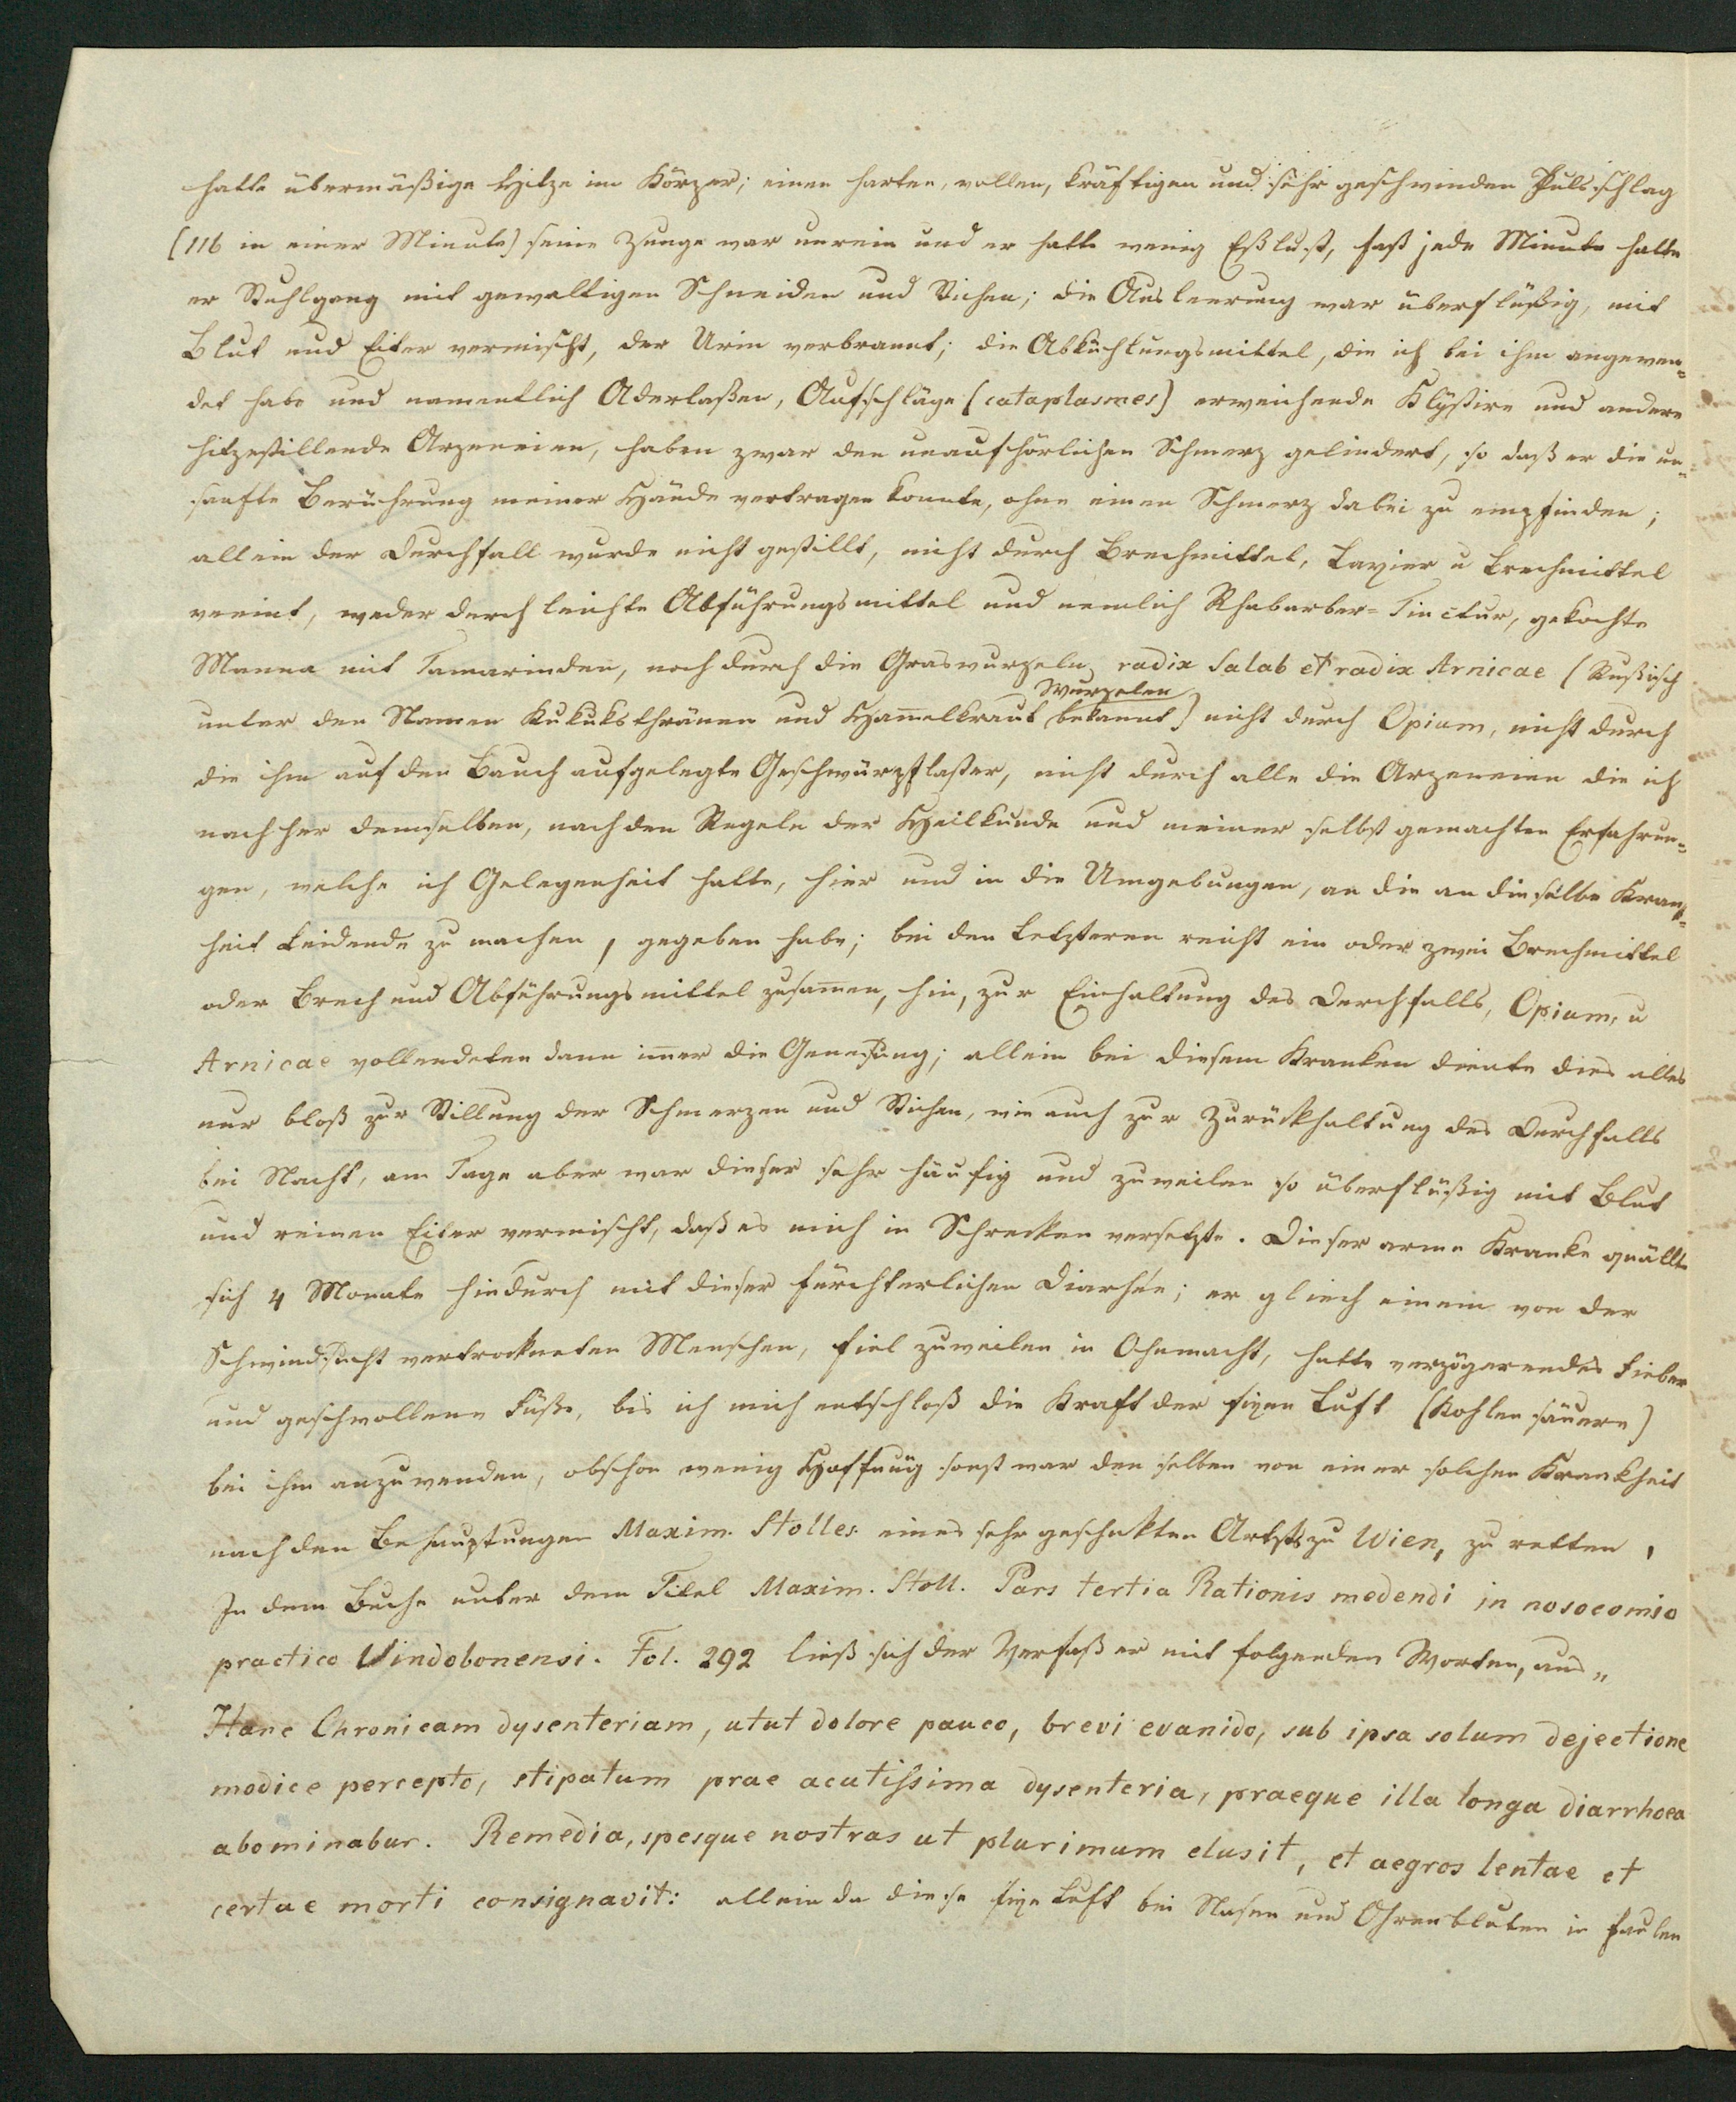 hatte übermäßige Hitze im Körper; einen harten, vollen, kräftigen und sehr geschwinden Pulsschlag
(116 in einer Minute) seine Zunge war unrein und er hatte wenig Eßlust, fast jede Minute hatte
er Stuhlgang mit gewaltigen Schneiden und Stichen; die Ausleerung war überflüßig, mit
Blut und Eiter vermischt, der Urin verbrannt; die Abkühlungsmittel, die ich bei ihm angewen¬
det habe und namentlich Aderlaßen, Aufschläge (cataplasmes) erweichende Klystire und andere
hitzestillende Arzeneien, haben zwar den unaufhörlichen Schmerz gelindert, so daß er die un¬
sanfte Berührung meiner Hände vertragen konnte, ohne einen Schmerz dabei zu empfinden;
allein der Durchfall wurde nicht gestillt, nicht durch Brechmittel, Laxier u Brechmittel
vereint, weder durch leichte Abführungsmittel und nemlich Rhabarber-Tinctur, gekochte
Manna mit Tamarinden, noch durch die Graswurzeln, radix Salab et radix Arnicae (Rußisch
unter den Namen Kukuksthränen und Hamelkraut Wurzelen bekannt) nicht durch Opium, nicht durch
die ihm auf den Bauch aufgelegte Geschwürpflaster, nicht durch alle die Arzeneien die ich
nachher demselben, nach den Regeln der Heilkunde und meiner selbst gemachten Erfahrun¬
gen, welche ich Gelegenheit hatte, hier und in die Umgebungen, an die an dieselbe Krank¬
heit Leidende zu machen, gegeben habe; bei den Letzteren reicht ein oder zwei Brechmittel
oder Brech und Abführungsmittel zusamen, hin, zur Einhaltung des Durchfalls, Opium, u
Arnicae vollendeten dann imer die Genesung; allein bei diesem Kranken diente dies alles
nur bloß zur Stillung der Schmerzen und Stichen, wie auch zur Zurückhaltung des Durchfalls
bei Nacht, am Tage aber war dieser sehr häufig und zuweilen so überflüßig mit Blut
und reinen Eiter vermischt, daß es mich in Schrecken versetzte. Dieser arme Kranke quällte
sich 4 Monate hindurch mit dieser fürchterlichen Diarhée; er gliech einem von der
Schwindsucht vertrockneten Menschen, fiel zuweilen in Ohnmacht, hatte verzögerendes Fieber
und geschwollene Füße, bis ich mich entschloß die Kraft der fixen Luft (Kohlensäuere)
bei ihm anzuwenden, obschon wenig Hoffnug sonst war denselben von einer solchen Krankheit
nach den Behauptungen Maxim. Stolles. eines sehr geschakten Artsts zu Wien, zu retten,
In dem Buche unter dem Titel Maxim. Stoll. Pars tertia Rationis medendi in nosocomio
practico Vindobonensi. Fol. 292 ließ sich der Verfaßer mit folgenden Worten, aus„
Hanc Chronicam dysenteriam, utut dolore pauco, brevi evanido, sub ipsa solum dejectione
modice percepto, stipatum prae acutissima dysenteria, praeque illa longa diarrhoea
abominabur. Remedia, spesque nostras ut plurimum elusit, et aegros lentae et
certae morti consignavit: allein da diese fixe Luft bei Nasen und Ohrenbluten in faulen